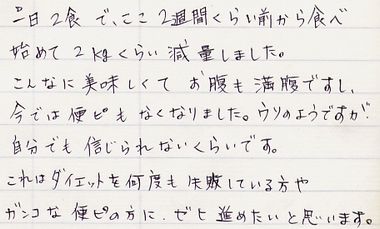 一日2食で、ここ2週間くらい前から食べ
始めて2kgくらい減量しました。
こんなに美味しくてお腹も満腹ですし、
今では便ピもなくなりました。ウソのようですが、
自分でも信じられないくらいです。
これはダイエットを何度も失敗している方や
ガンコな便ピの方に、ぜヒ進めたいと思います。